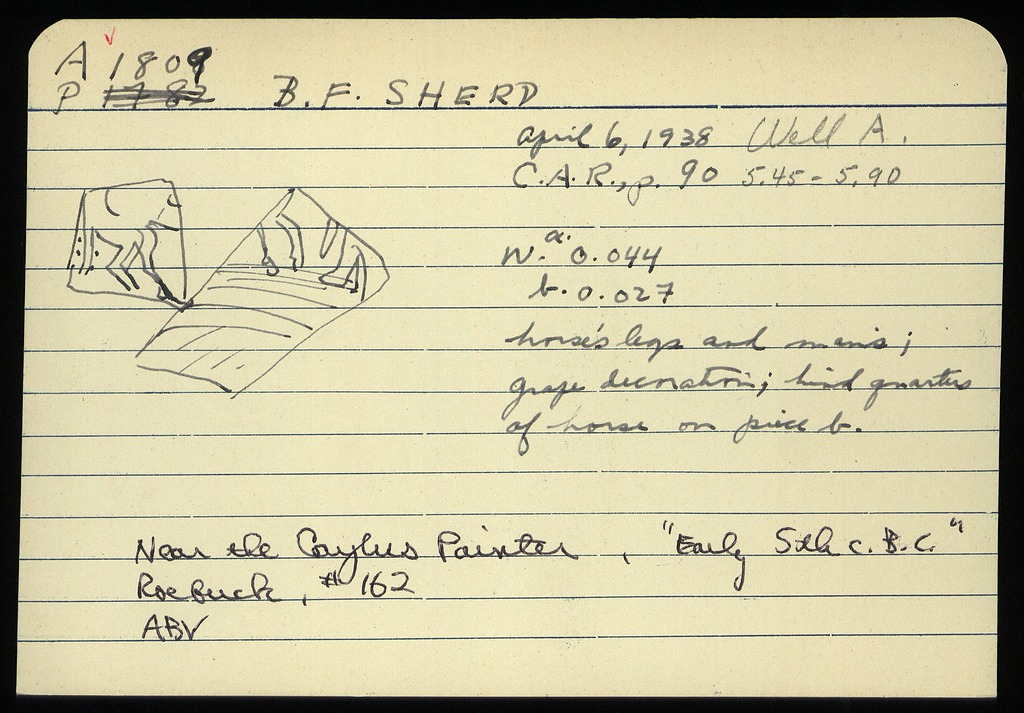 A 1809
P 1787 B.F. SHERD
April 6, 1938 Well A.
C.A.R., p. 90 5.45 - 5.90
W. a. 0.044
b. 0.027
horse's legs and man's;
grape decoration; hind quarters
of horse on piece b.
Near the Caylus Painter, "Early 5th c. B.C."
Roebuck, #162
ABV